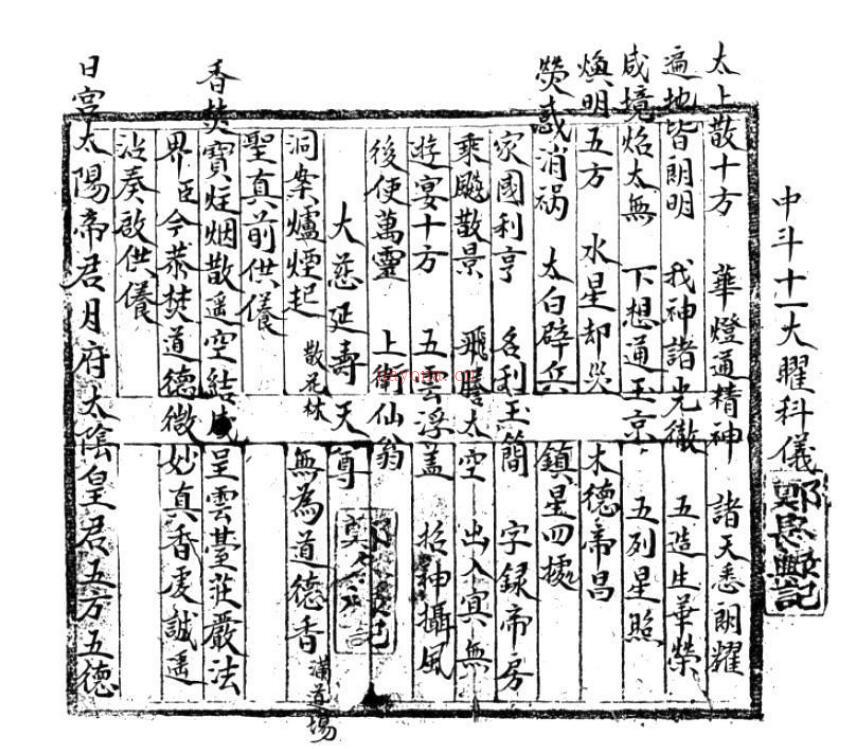 中斗十一大曜科儀 鄭興記
太上散十方 華燈通精神 諸天悉朗耀
遍地皆朗明 我神諸光徹 五造生華榮
咸境焰太無 下想通玉京 五列星照
煥明五方 水星却災 木德帝昌
熒惑消祸 太白辟兵 鎮星四據
家國利亨 名利玉簡 字録帝房
乘飈散景 飛騰太空 出入冥無
遊宴十方 五雲浮盖 招神攝風
後使萬靈 上衛仙翁
大慈延壽天尊
洞案爐煙起 散花林 無為道德香 满道場
聖真前供儀
香焚寶炷烟散遥空結成呈雲臺莊嚴法
界臣今恭焚道德微妙真香虔誠遥
沾奏啟供儀
日宮太陽帝君月府太陰皇君五方五德